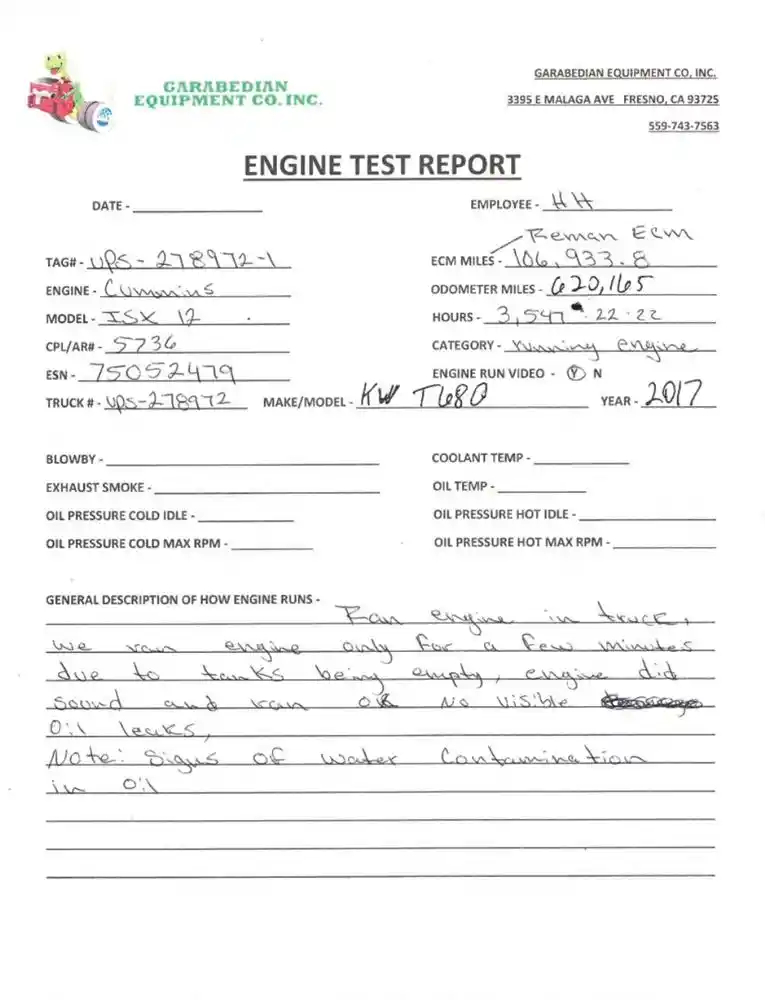 GARABEDIAN
EQUIPMENT CO. INC.
GARABEDIAN EQUIPMENT CO, INC.
3395 E MALAGA AVE FRESNO, CA 93725
559-743-7563
ENGINE TEST REPORT
DATE -
EMPLOYEE - HH
Reman Ecm
TAG# - UPS-278972-1
ECM MILES - 106,933.8
ENGINE - Cummins
ODOMETER MILES - 620,165
MODEL - ISX 12
HOURS - 3,547 22 22
CPL/AR# - 5736
CATEGORY - running engine
ESN - 75052479
ENGINE RUN VIDEO - Y N
TRUCK # - UPS-278972 MAKE/MODEL - KW T680 YEAR - 2017
BLOWBY -
COOLANT TEMP -
EXHAUST SMOKE -
OIL TEMP -
OIL PRESSURE COLD IDLE -
OIL PRESSURE HOT IDLE -
OIL PRESSURE COLD MAX RPM -
OIL PRESSURE HOT MAX RPM -
GENERAL DESCRIPTION OF HOW ENGINE RUNS -
Ran engine in truck,
we ran engine only for a few minutes
due to tanks being empty, engine did
sound and ran ok No visible
Oil leaks,
Note: Signs of water Contamination
in oil